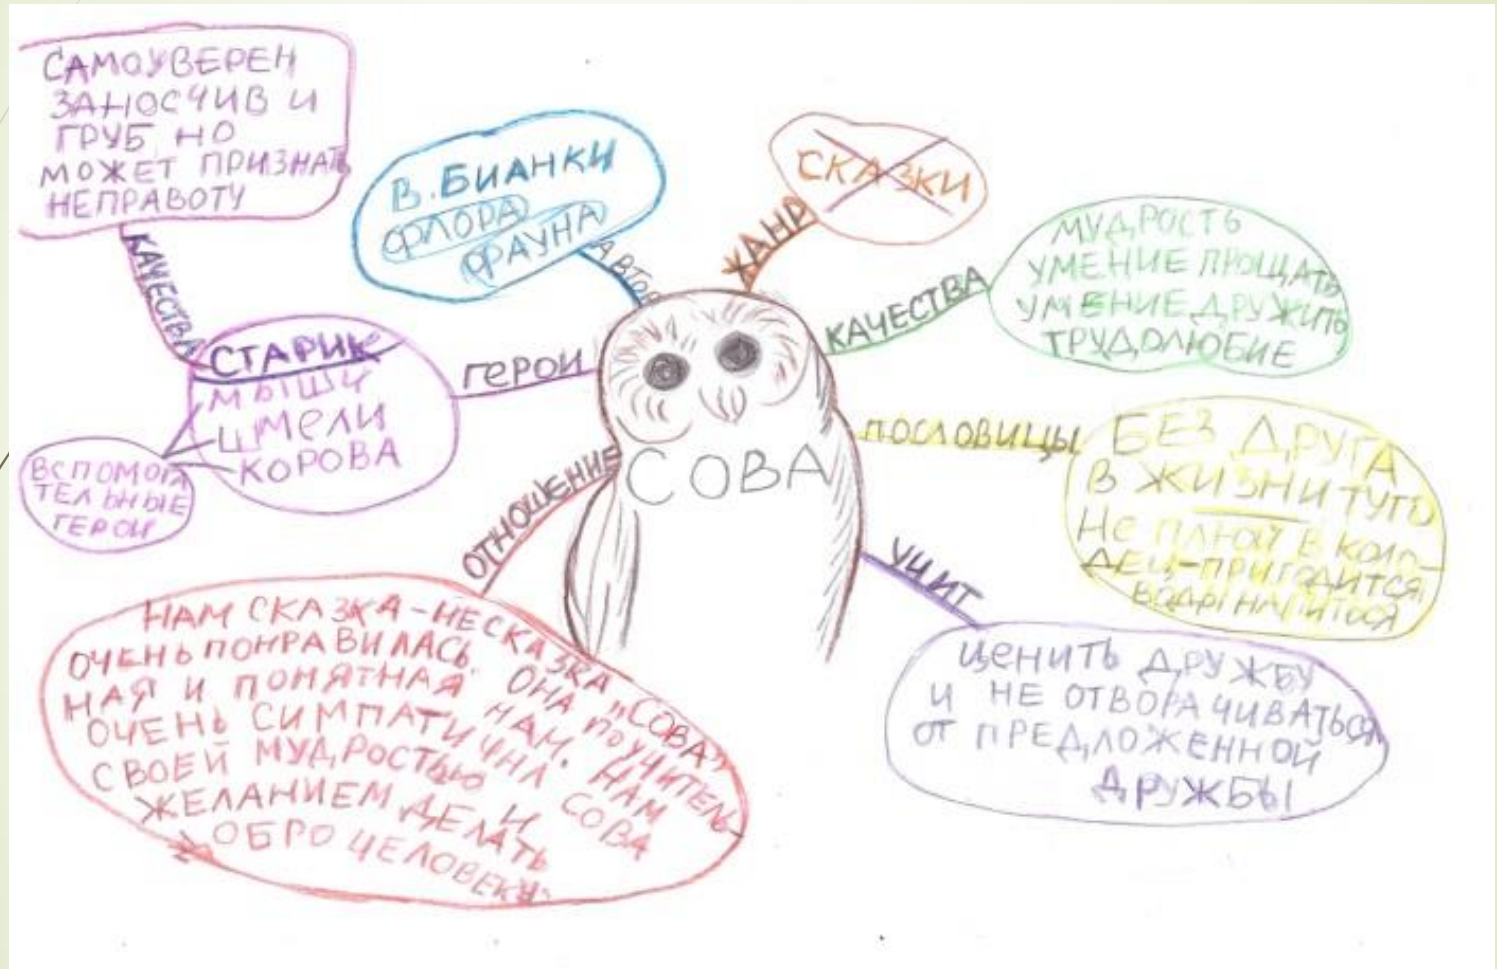 САМОУВЕРЕН
ЗАНОСЧИВ И
ГРУБ, НО
МОЖЕТ ПРИЗНАТЬ
НЕПРАВОТУ
КАЧЕСТВА
СТАРИК
МЫШИ
ШМЕЛИ
КОРОВА
ВСПОМОГА
ТЕЛЬНЫЕ
ГЕРОИ
ГЕРОИ
В. БИАНКИ
ФЛОРА
ФАУНА
АВТОР
ЖАНР
СКАЗКИ
КАЧЕСТВА
МУДРОСТЬ
УМЕНИЕ ПРОЩАТЬ
УМЕНИЕ ДРУЖИТЬ
ТРУДОЛЮБИЕ
ПОСЛОВИЦЫ
БЕЗ ДРУГА
В ЖИЗНИ ТУГО
НЕ ПЛЮЙ В КОЛО-
ДЕЦ-ПРИГОДИТСЯ
ВОДЫ НАПИТЬСЯ
СОВА
УЧИТ
ЦЕНИТЬ ДРУЖБУ
И НЕ ОТВОРАЧИВАТЬСЯ
ОТ ПРЕДЛОЖЕННОЙ
ДРУЖБЫ
ОТНОШЕНИЕ
НАМ СКАЗКА-НЕСКАЗКА „СОВА"
ОЧЕНЬ ПОНРАВИЛАСЬ. ОНА ПОУЧИТЕЛЬ
НАЯ И ПОНЯТНАЯ НАМ. НАМ
ОЧЕНЬ СИМПАТИЧНА СОВА
СВОЕЙ МУДРОСТЬЮ И
ЖЕЛАНИЕМ ДЕЛАТЬ
ДОБРО ЧЕЛОВЕКУ